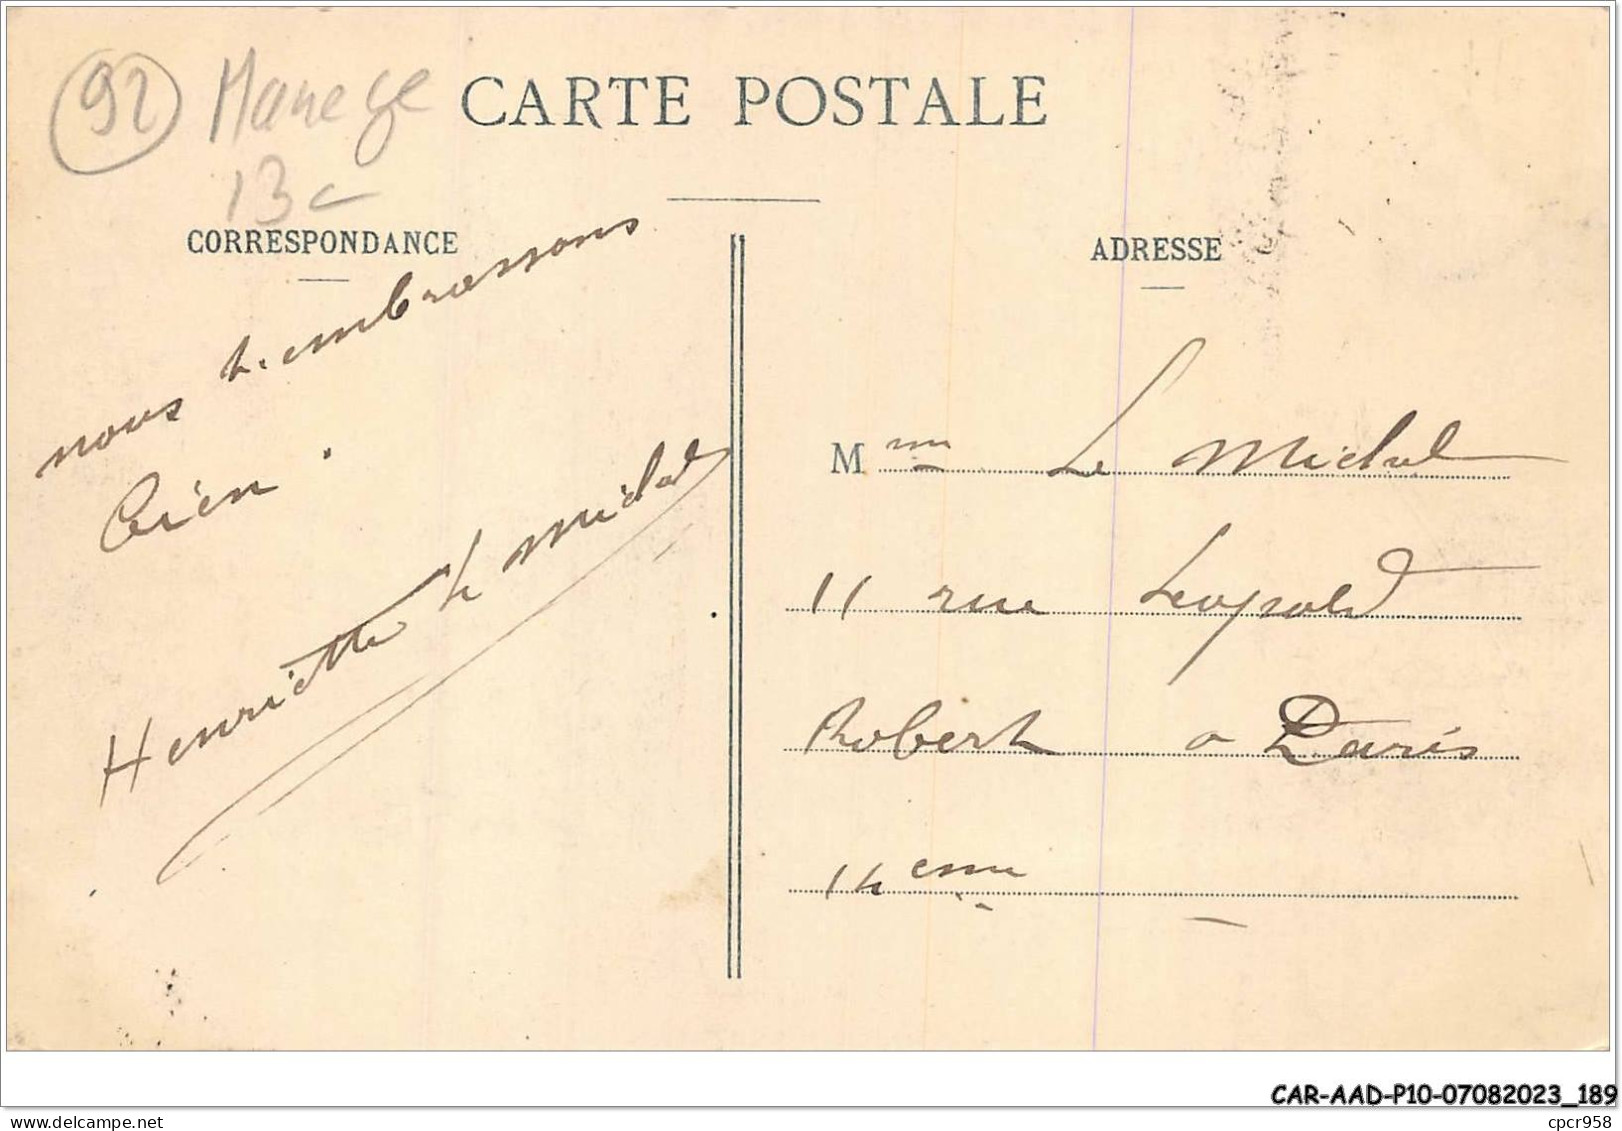 92 Manege
13c
CARTE POSTALE
CORRESPONDANCE
nous t.embrassons
bien.
Henriette Le Michel
ADRESSE
Mme Le Michel
11 rue Leopold
Robert a Paris
14eme
CAR-AAD-P10-07082023_189
delcampe.net
cpcr958